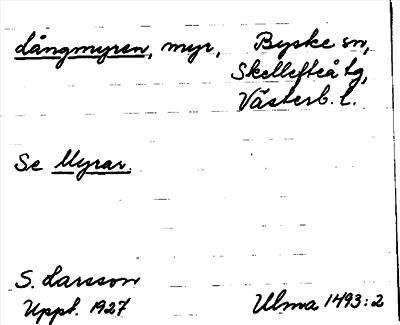 Långmyren, myr, Byske sn,
Skellefteå tg,
Västerb. l.
Se Myrar.
S. Larsson
Uppt. 1927 Ulma 1493:2